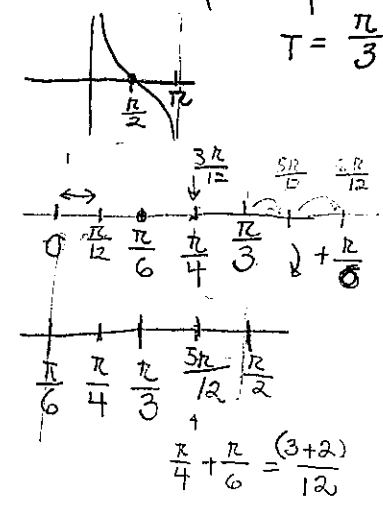 T = π/3
π/2 π
3π/12 5π/12 6π/12
0 π/12 π/6 π/4 π/3 + π/6
π/6 π/4 π/3 5π/12 π/2
π/4 + π/6 = (3+2)/12